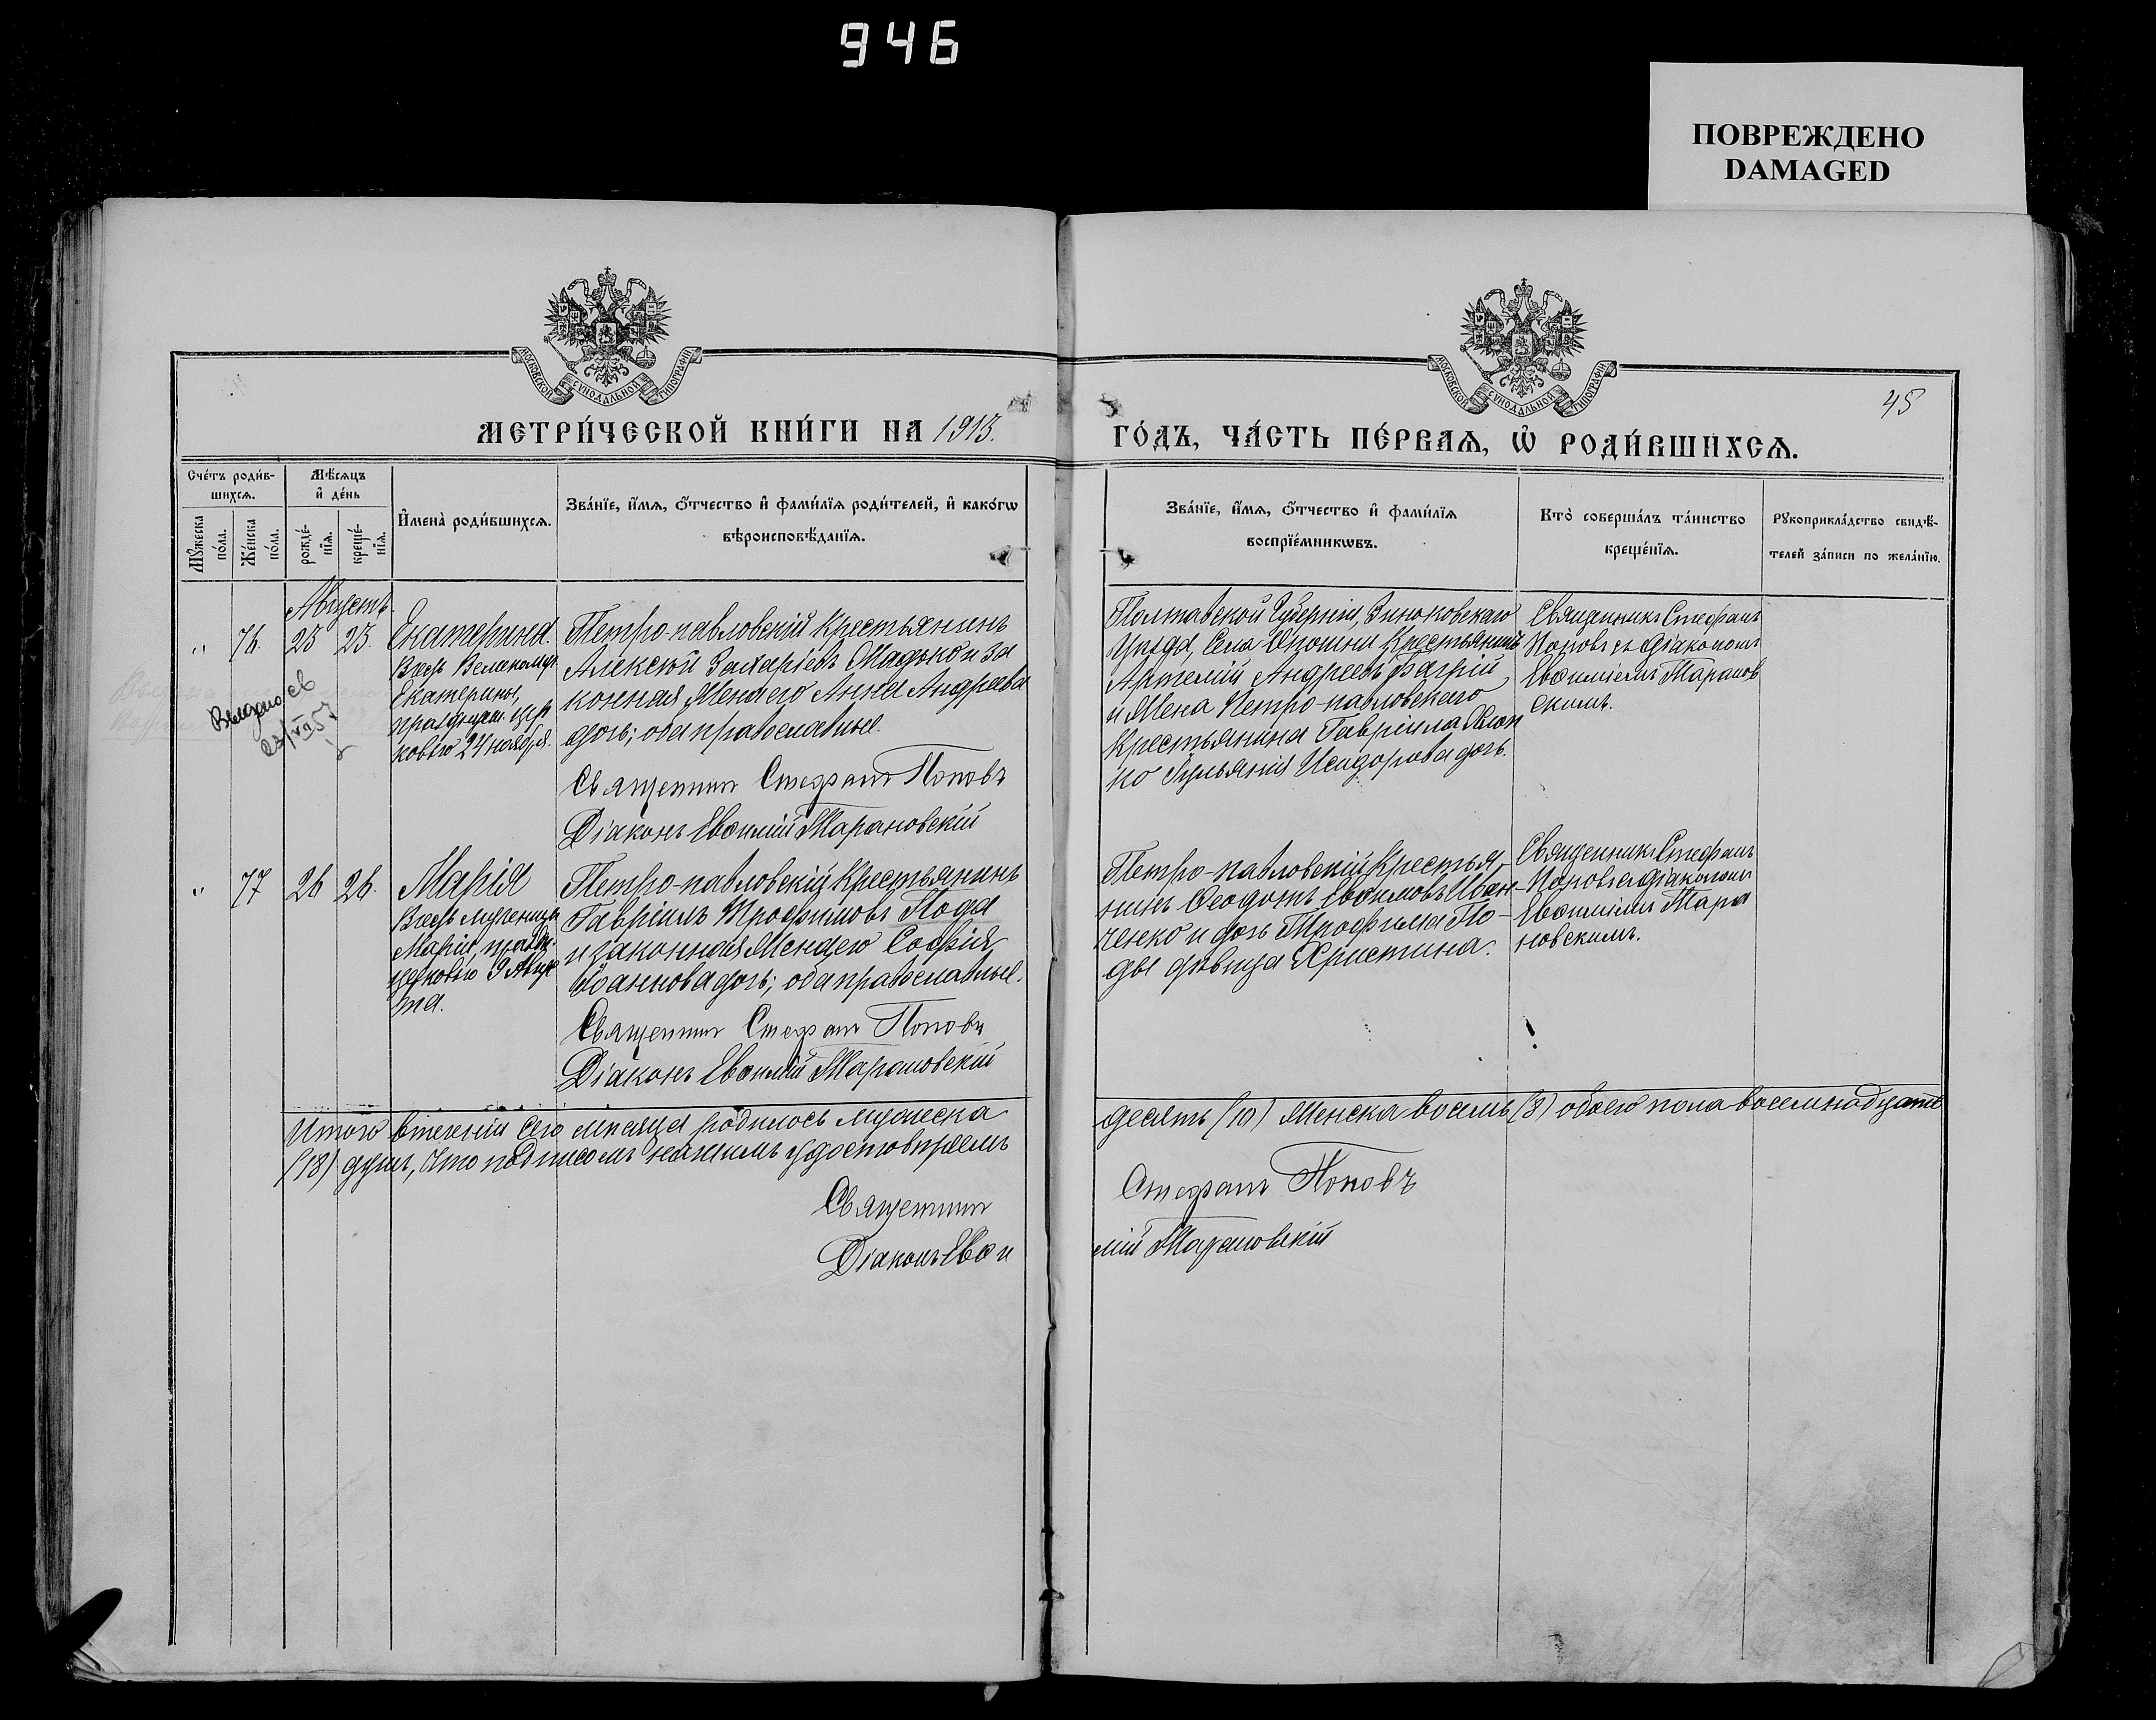 946
ПОВРЕЖДЕНО
DAMAGED
МОСКОВСКОЙ СѴНОДАЛЬНОЙ ТИПОГРАФІИ
МОСКОВСКОЙ СѴНОДАЛЬНОЙ ТИПОГРАФІИ
45
МЕТРИ́ЧЕСКОЙ КНИ́ГИ НА 1913.
ГО́ДЪ, ЧА́СТЬ ПЕ́РВАѦ, Ѽ РОДИ́ВШИХСѦ.
Сче́тъ роди́в-
шихсѧ.
Мѣ́сѧцъ
и҆ де́нь
Мꙋ́жеска
по́ла.
Же́нска
по́ла.
рожде́-
нїѧ.
креще́-
нїѧ.
И҆мена̀ роди́вшихсѧ.
Зва́нїе, и҆́мѧ, ѻ҆́тчество и҆ фами́лїѧ роди́телей, и҆ како́гѡ
вѣроисповѣ́данїѧ.
Зва́нїе, и҆́мѧ, ѻ҆́тчество и҆ фами́лїѧ
воспрїе́мникѡвъ.
Кто̀ соверша́лъ та́инство
креще́нїѧ.
Рꙋкоприкла́дство свидѣ́-
телей за́писи по жела́нїю.
Августъ.
" 76. 25 25.
Екатерина.
Въ честь Великомуч.
Екатерины,
празднуем. цер
ковью 24 ноября.
Петро-павловскій крестьянинъ
Алексѣй Захаріевъ Мадько и за
конная жена его Анна Андреева
дочь; оба православные.
Священник Стефанъ Поповъ
Діаконъ Евѳимій Тарановскій
Полтавской губерніи, Зиньковскаго
уѣзда, села Опошни крестьянинъ
Артемій Андреевъ Багрій
и жена Петро-павловскаго
крестьянина Гавріила
Гульянія Исидорова дочь.
Священникъ Стефанъ
Поповъ съ діакономъ
Евѳиміемъ Таранов
скимъ.
" 77 26 26.
Марія
Въ честь мученицы
Маріи, праздн.
церковью 9 Авгус
та.
Петро-павловскій крестьянинъ
Гавріилъ Трофимовъ Пода
и законная жена его Софія
Іоаннова дочь; оба православные.
Священник Стефанъ Поповъ
Діаконъ Евѳимій Тарановскій
Петро-павловскій крестья-
нинъ Ѳеодотъ Евѳимовъ Иван-
ченко и дочь Трофима По-
ды дѣвица Христина.
Священникъ Стефанъ
Поповъ съ діакономъ
Евѳиміемъ Тара
новскимъ.
Итого втеченіи сего мѣсяца родилось мужеска
десять (10) женска восемь (8) обоего пола восемнадцать
(18) душъ, что подписомъ нашимъ удостовѣряемъ
Священник Стефанъ Поповъ
Діаконъ Евѳимій Тарановскій